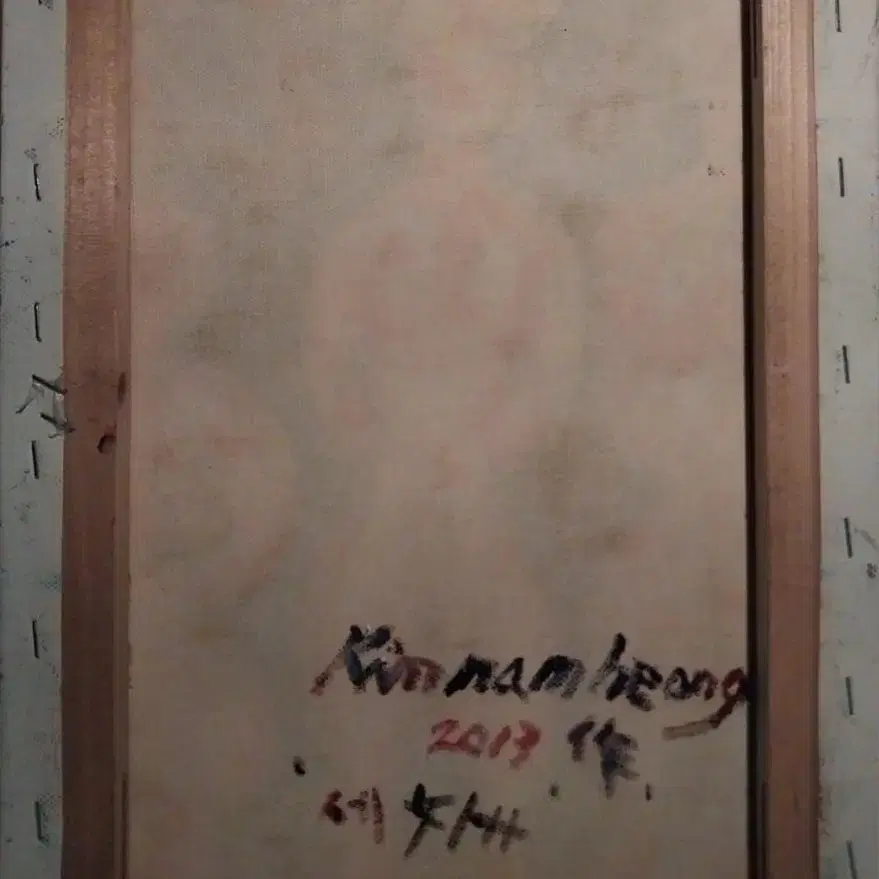 Kimnamheong
2013 作